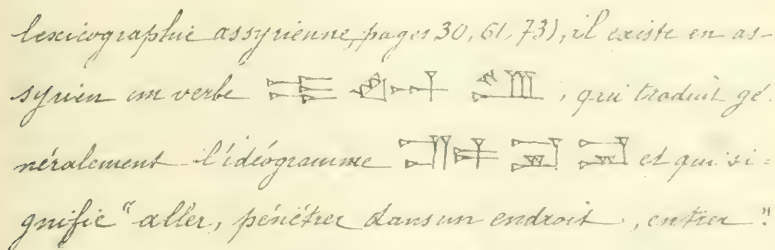 lexicographie assyrienne, pages 30, 61, 73), il existe en as-
syrien un verbe , qui traduit gé-
néralement l'idéogramme et qui si-
gnifie "aller, pénétrer dans un endroit, entrer."